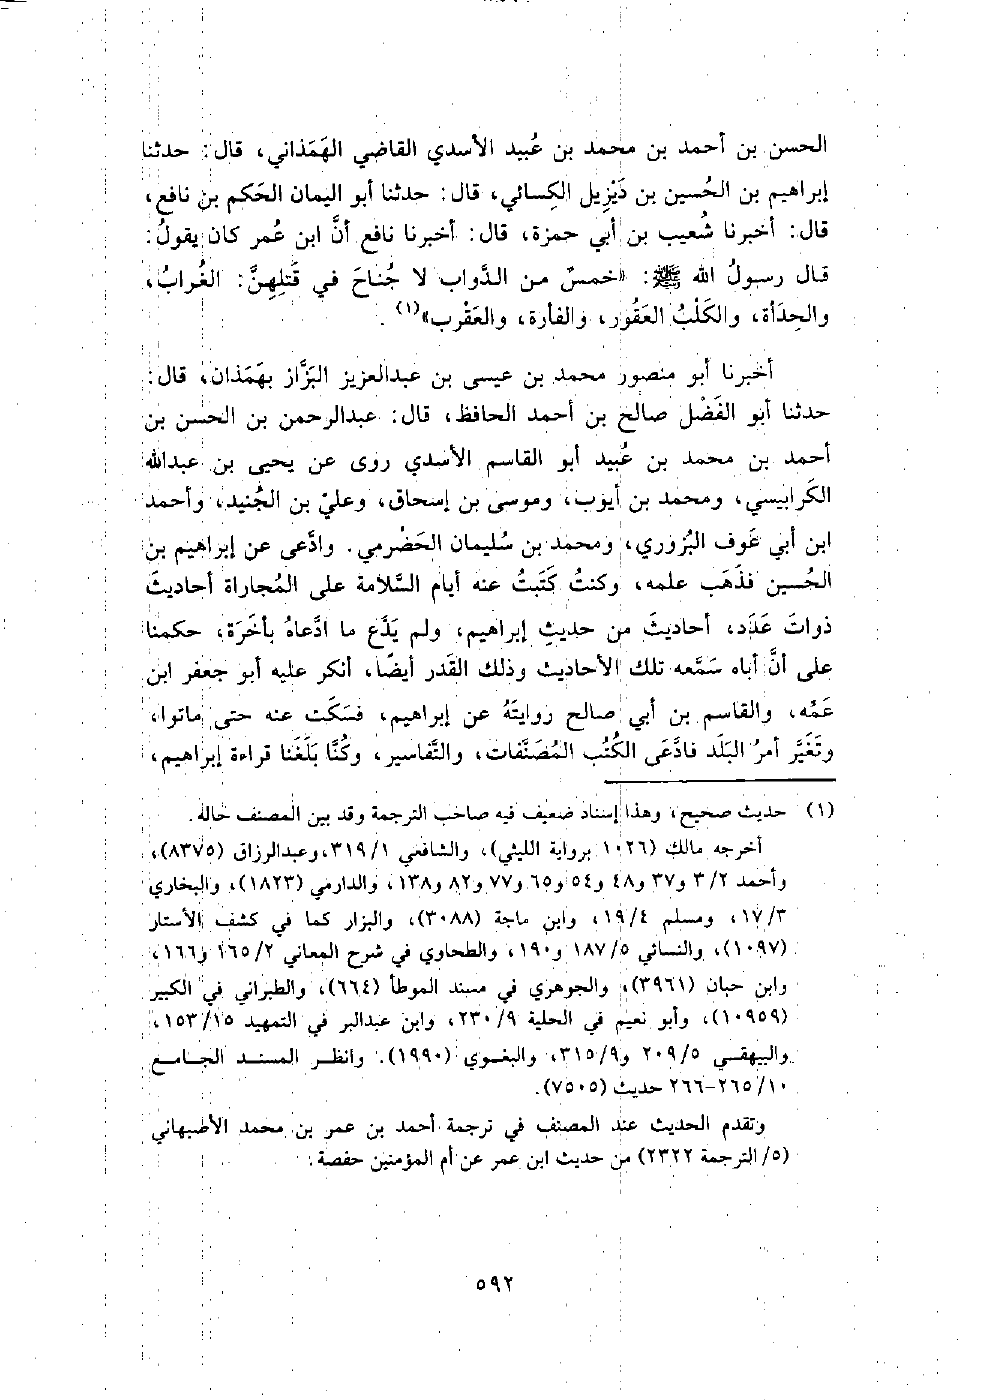 الحسن بن أحمد بن محمد بن عُبيد الأسدي القاضي الهَمَذاني، قال: حدثنا
إبراهيم بن الحُسين بن دَيْزيل الكِسائي، قال: حدثنا أبو اليمان الحَكم بن نافع،
قال: أخبرنا شُعيب بن أبي حمزة، قال: أخبرنا نافع أنَّ ابن عُمر كان يقولُ:
قال رسولُ الله ﷺ: «خمسٌ من الدَّواب لا جُناحَ في قَتْلِهِنَّ: الغُرابُ،
والحِدَأة، والكَلْبُ العَقُور، والفأرة، والعَقْرب»(١).
أخبرنا أبو منصور محمد بن عيسى بن عبدالعزيز البَزَّاز بهَمَذان، قال:
حدثنا أبو الفَضْل صالح بن أحمد الحافظ، قال: عبدالرحمن بن الحسن بن
أحمد بن محمد بن عُبيد أبو القاسم الأسدي روى عن يحيى بن عبدالله
الكَرابيسي، ومحمد بن أيوب، وموسى بن إسحاق، وعليّ بن الجُنيد، وأحمد
ابن أبي عَوف البُزوري، ومحمد بن سُليمان الحَضْرمي. وادَّعى عن إبراهيم بن
الحُسين فذَهَب علمه، وكنتُ كَتَبتُ عنه أيام السَّلامة على المُجاراة أحاديثَ
ذواتَ عَدَد، أحاديثَ من حديثِ إبراهيم، ولم يَدَّع ما ادَّعاهُ بأخَرَة، حكمنا
على أنَّ أباه سَمَّعه تلك الأحاديث وذلك القَدر أيضًا، أنكر عليه أبو جعفر ابن
عَمِّه، والقاسم بن أبي صالح روايتَهُ عن إبراهيم، فسَكَت عنه حتى ماتوا،
وتَغَيَّر أمرُ البَلَد فادَّعَى الكُتُب المُصَنَّفات، والتَّفاسير، وكُنَّا بَلَغَنا قراءة إبراهيم،
(١) حديث صحيح، وهذا إسناد ضعيف فيه صاحب الترجمة وقد بين المصنف حاله.
أخرجه مالك (١٠٢٦ برواية الليثي)، والشافعي ٣١٩/١، وعبدالرزاق (٨٣٧٥)،
وأحمد ٣/٢ و٣٧ و٤٨ و٥٤ و٦٥ و٧٧ و٨٢ و١٣٨، والدارمي (١٨٢٣)، والبخاري
١٧/٣، ومسلم ١٩/٤، وابن ماجة (٣٠٨٨)، والبزار كما في كشف الأستار
(١٠٩٧)، والنسائي ١٨٧/٥ و١٩٠، والطحاوي في شرح المعاني ١٦٥/٢ و١٦٦،
وابن حبان (٣٩٦١)، والجوهري في مسند الموطأ (٦٦٤)، والطبراني في الكبير
(١٠٩٥٩)، وأبو نعيم في الحلية ٢٣٠/٩، وابن عبدالبر في التمهيد ١٥٣/١٥،
والبيهقي ٢٠٩/٥ و٣١٥/٩، والبغوي (١٩٩٠). وانظر المسند الجامع
٢٦٥/١٠-٢٦٦ حديث (٧٥٠٥).
وتقدم الحديث عند المصنف في ترجمة أحمد بن عمر بن محمد الأصبهاني
(٥/ الترجمة ٢٣٢٢) من حديث ابن عمر عن أم المؤمنين حفصة.
٥٩٢